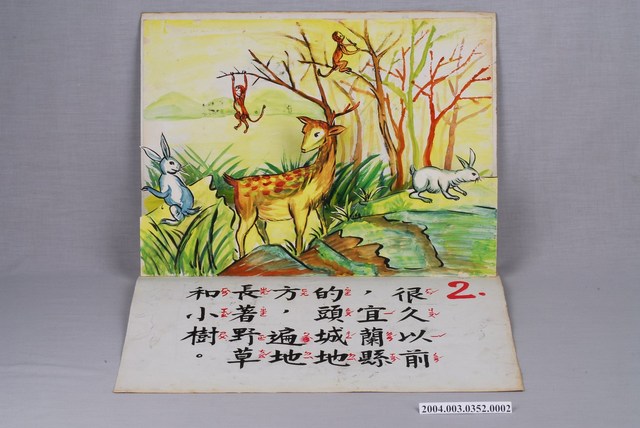 2.
很久以前
，宜蘭縣
的頭城地
方，遍地
長著野草
和小樹。
2004.003.0352.0002